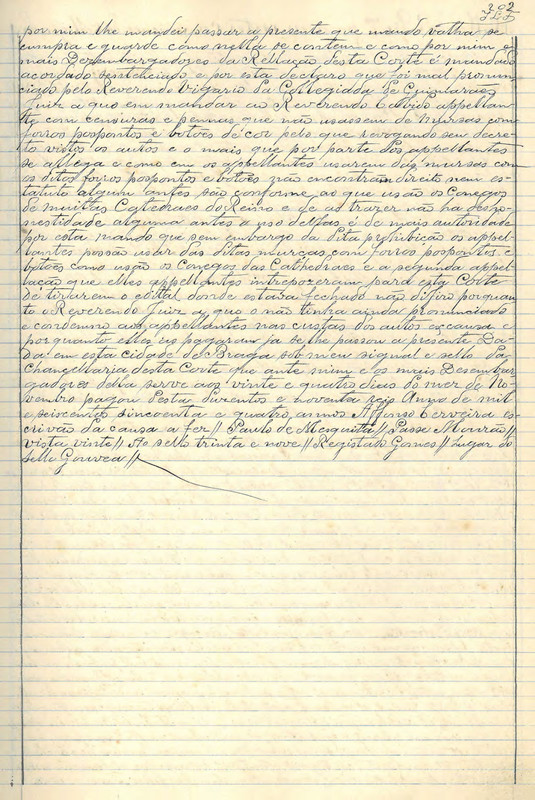 302
por mim lhe mandei passar a presente que mando valha se
cumpra e guarde como nella se contem e como por mim e
mais Dezembargadores da Rellação desta Corte é mandado
acordado e sentenciado e por esta declaro que foi mal pronun-
ciado pelo Reverendo Vigario da Collegiada de Guimarães
Juiz a quo em mandar ao Reverendo Cabido appellan-
te com censuras e pennas que não usassem de mursas com
forros pospontos e botões de cor pelo que revogando seu decre-
to vistos os autos e o mais que por parte dos appellantes
se allega e como em os appellantes usarem das mursas com
os ditos forros pospontos e botões não encontram direito nem es-
tatuto algum antes são conforme ao que usão os Conegos
de muittas Cathedraes do Reino e de as trazer não ha desho-
nestidade alguma antes a uso dellas é de mais autoridade
por esta mando que sem embargo da dita prohibição os appel-
lantes possão usar das ditas murças com forros pospontos e
botões como usão os Conegos das Cathedraes e a segunda appel-
lação que elles appellantes intrepozeram para esta Corte
de tirarem o edital donde estava fechado não difiro porquan
to o Reverendo Juiz a quo o não tinha ainda pronunciado
e condemno aos appellantes nas custas dos autos ex causa e
porquanto elles as pagaram ja se lhe passou a presente Da-
da em esta cidade de Braga sob meu signal e sello da
Chancellaria desta Corte que ante mim e os mais Desembar
gadores della serve aos vinte e quatro dias do mez de No-
vembro pagou desta duzentos e noventa reis Anno de mil
e seiscentos sincoenta e quatro annos Affonso Cerveira es-
crivão da causa a fez // Paulo de Mesquita // Passe Mourão //
vista vinte // Ao sello trinta e nove // Registado Gomes // Lugar do
sello Gouvea //